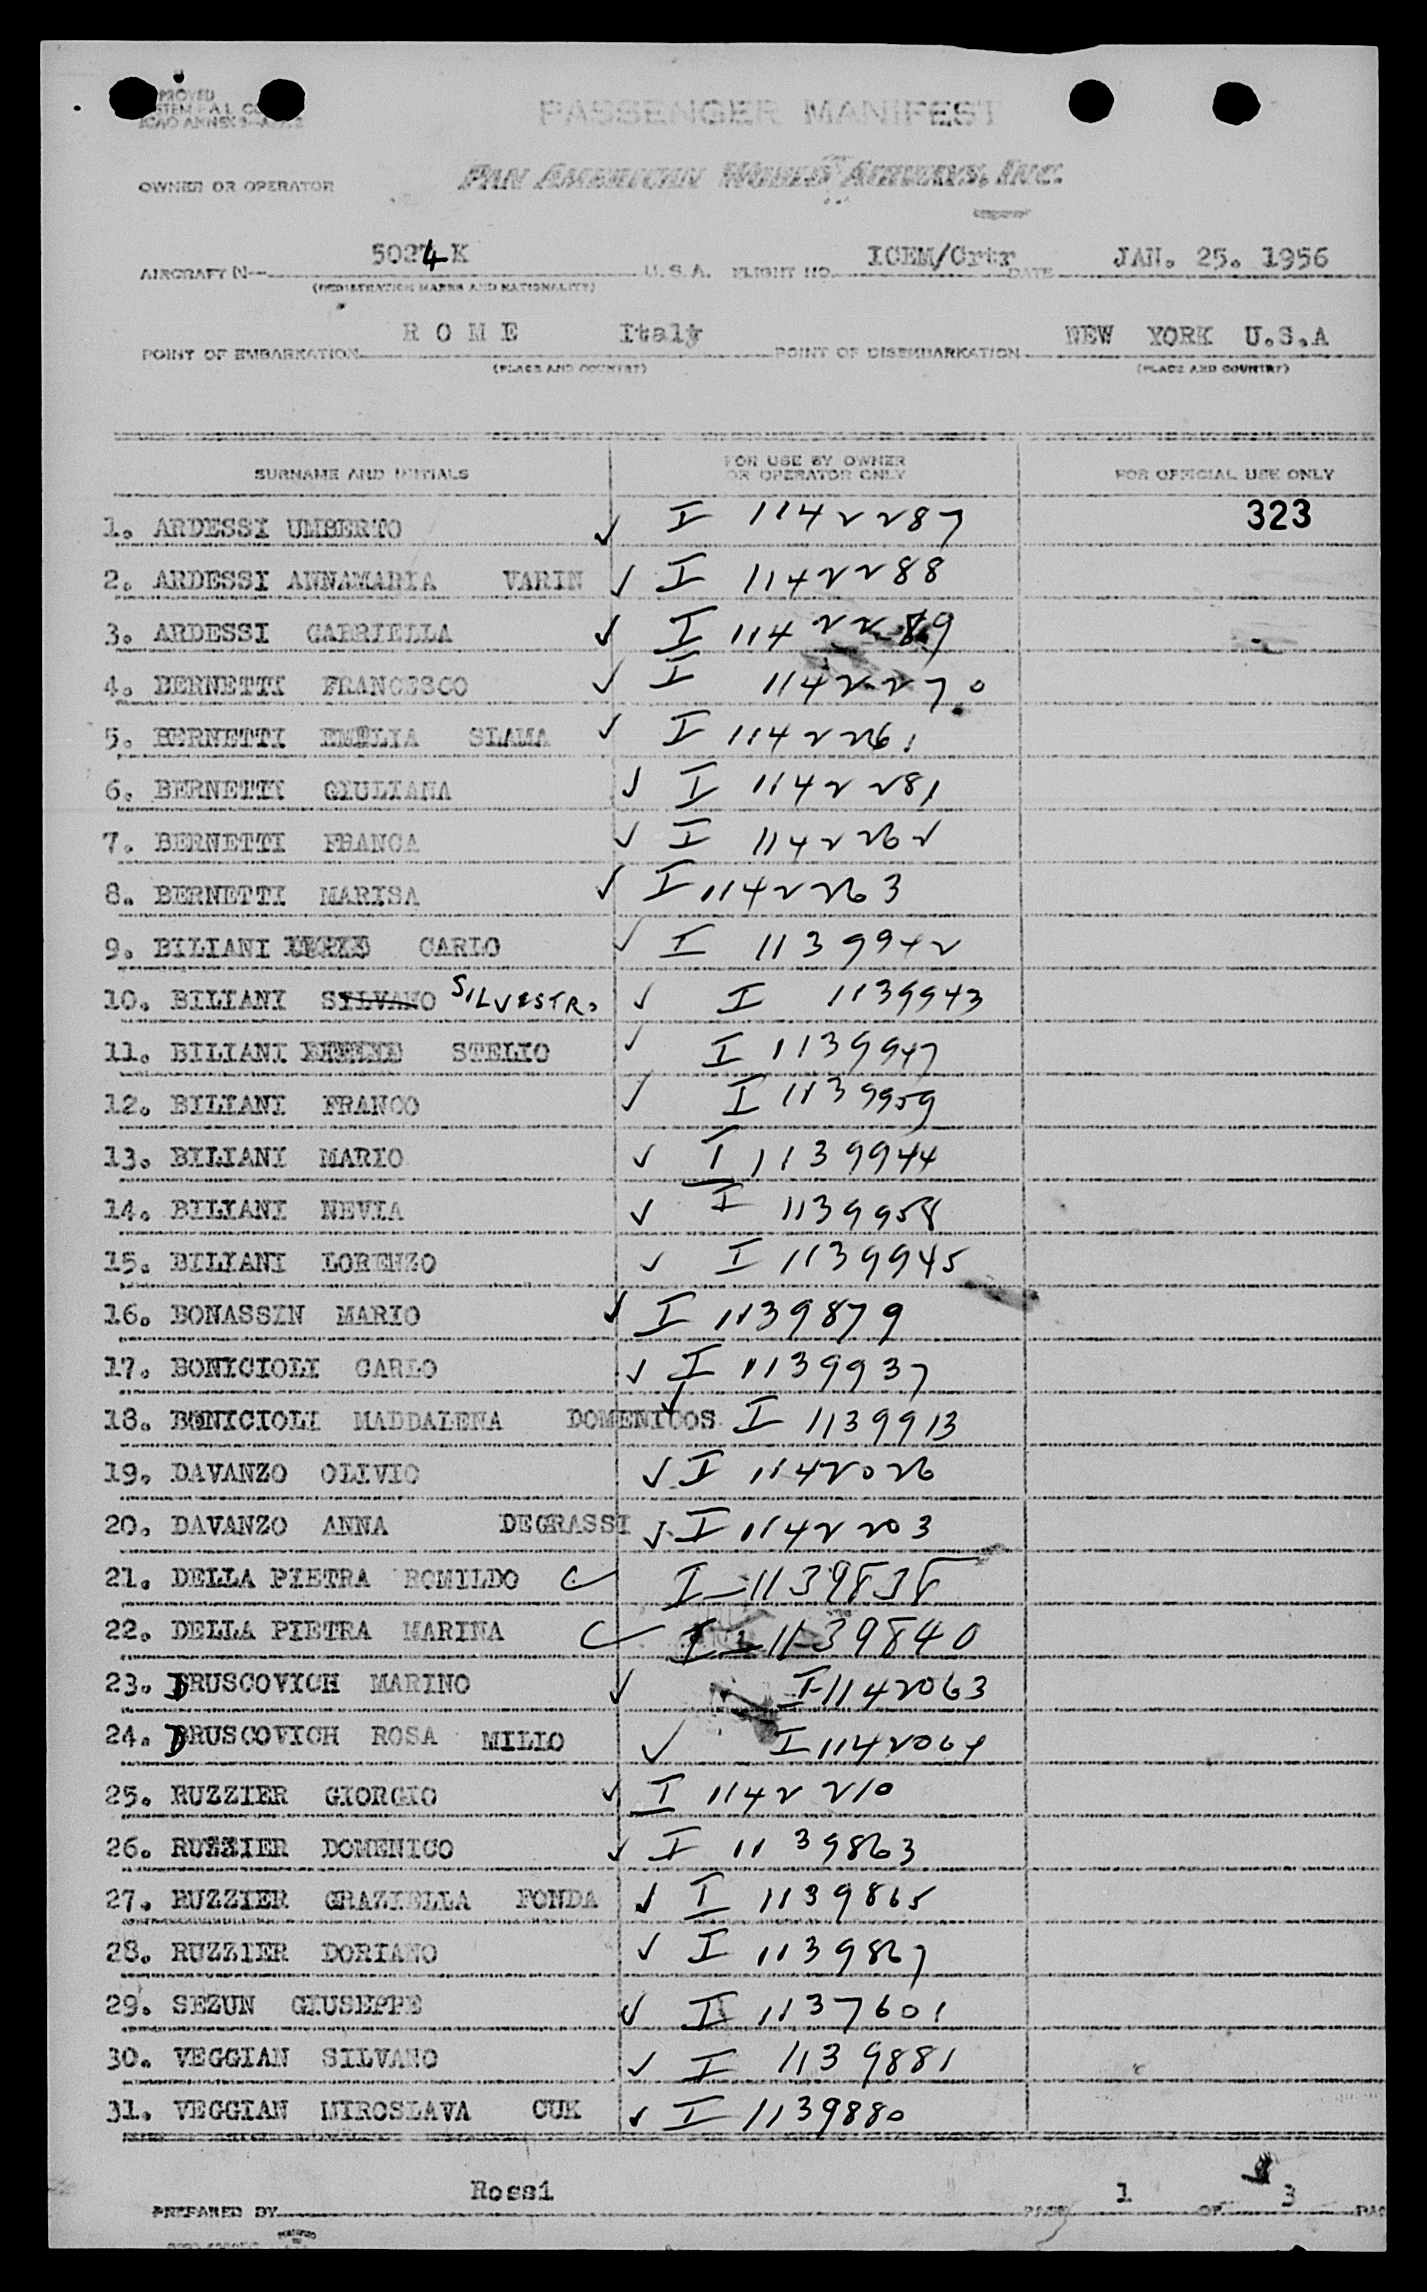 PASSENGER MANIFEST
OWNER OR OPERATOR PAN AMERICAN WORLD AIRWAYS, INC.
AIRCRAFT N— 5024 K U. S. A. FLIGHT NO. ICEM/Crtr DATE JAN. 25. 1956
(REGISTRATION MARKS AND NATIONALITY)
POINT OF EMBARKATION R O M E Italy POINT OF DISEMBARKATION NEW YORK U.S.A
(PLACE AND COUNTRY) (PLACE AND COUNTRY)
SURNAME AND INITIALS FOR USE BY OWNER OR OPERATOR ONLY FOR OFFICIAL USE ONLY
323
1. ARDESSI UMBERTO ✓ I 1142287
2. ARDESSI ANNAMARIA VARIN ✓ I 1142288
3. ARDESSI GABRIELLA ✓ I 1142289
4. BERNETTI FRANCESCO ✓ I 1142270
5. BERNETTI EMILIA SLAMA ✓ I 1142261
6. BERNETTI GIULIANA ✓ I 1142281
7. BERNETTI FRANCA ✓ I 1142262
8. BERNETTI MARISA ✓ I 1142263
9. BILIANI CARLO ✓ I 1139942
10. BILIANI SILVANO SILVESTRO ✓ I 1139943
11. BILIANI STELIO ✓ I 1139947
12. BILIANI FRANCO ✓ I 1139959
13. BILIANI MARIO ✓ I 1139944
14. BILIANI NEVIA ✓ I 1139958
15. BILIANI LORENZO ✓ I 1139945
16. BONASSIN MARIO ✓ I 1139879
17. BONICIOLI CARLO ✓ I 1139937
18. BONICIOLI MADDALENA DOMENICOS ✓ I 1139913
19. DAVANZO OLIVIO ✓ I 1142026
20. DAVANZO ANNA DEGRASSI ✓ I 1142203
21. DELLA PIETRA ROMILDO ✓ I-1139838
22. DELLA PIETRA MARINA ✓ I-1139840
23. DRUSCOVICH MARINO ✓ I-1142063
24. DRUSCOVICH ROSA MILIO ✓ I 1142064
25. RUZZIER GIORGIO ✓ I 1142210
26. RUZZIER DOMENICO ✓ I 1139863
27. RUZZIER GRAZIELLA FONDA ✓ I 1139865
28. RUZZIER DORIANO ✓ I 1139867
29. SEZUN GIUSEPPE ✓ I 1137601
30. VEGGIAN SILVANO ✓ I 1139881
31. VEGGIAN MIROSLAVA CUK ✓ I 1139880
PREPARED BY Rossi PAGE 1 OF 3 PAG